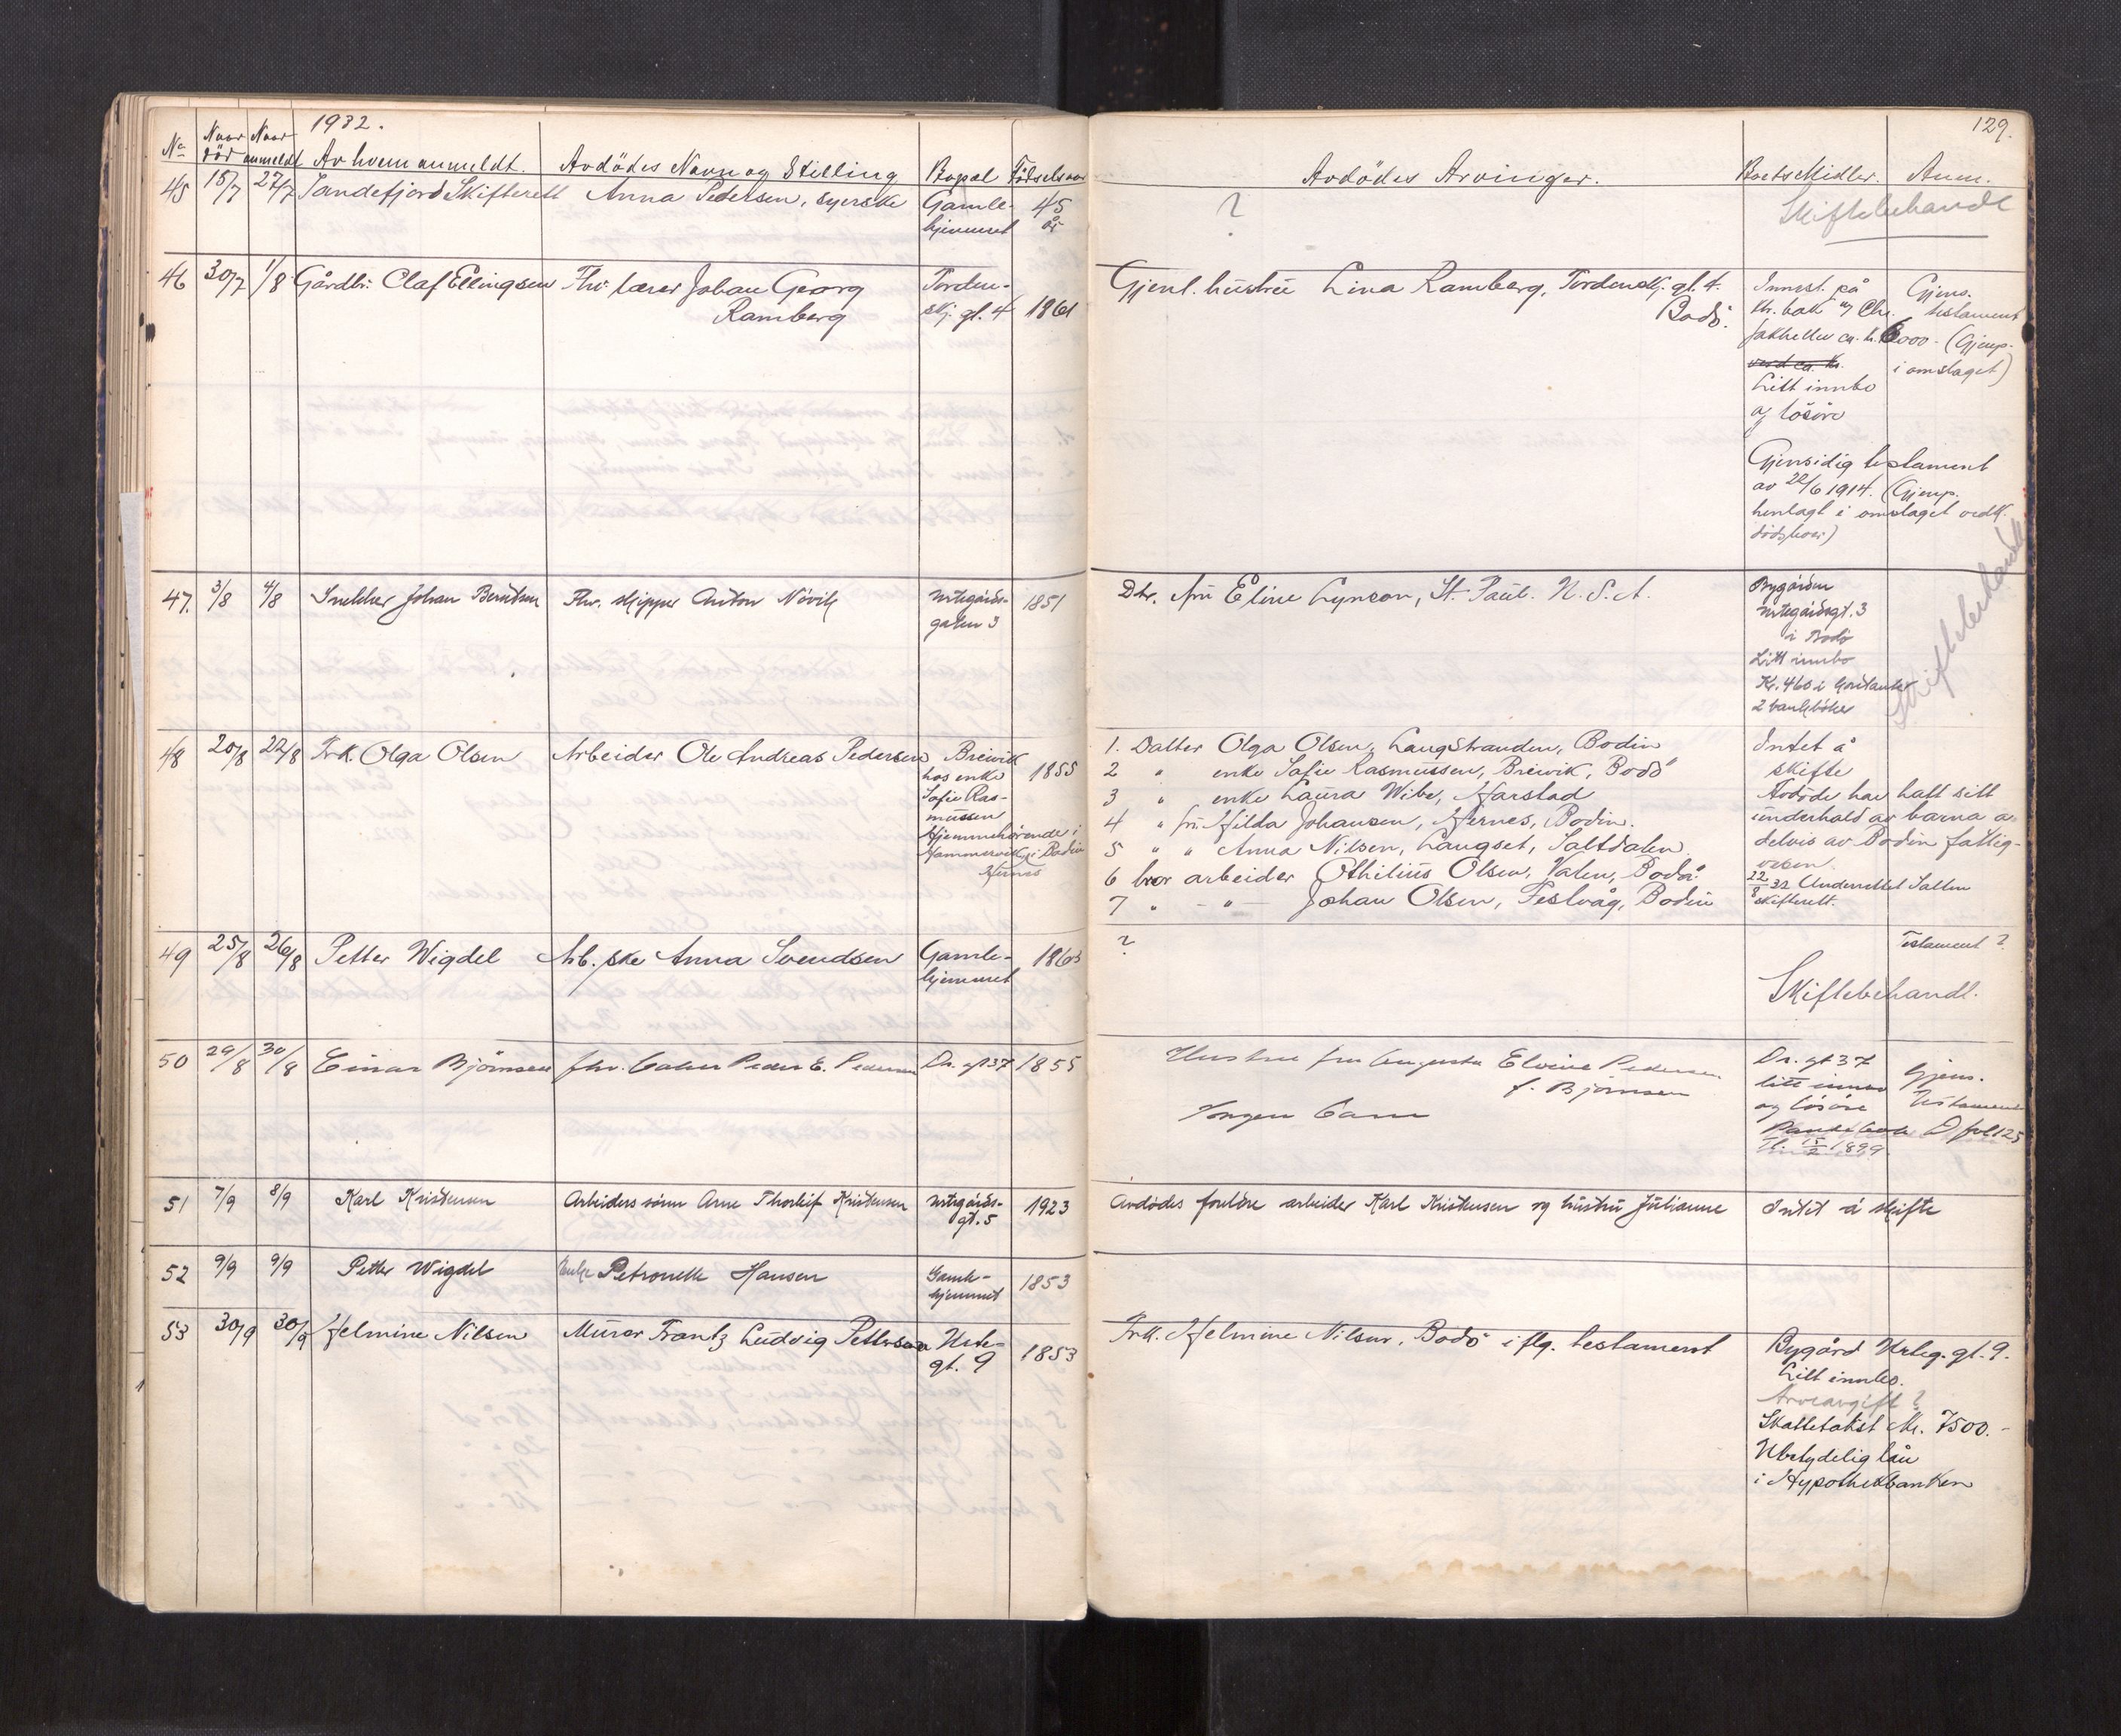 1932.
129.
No Naar död Naar anmeldt Av hvem anmeldt. Avdödes Navn og Stilling Bopæl Födselsaar
Avdödes Arvinger. Boets Midler. Anm.
45 18/7 27/7 Sandefjord Skifterett Anna Pedersen, syerske Gamle- 45
hjemmet år
? Skiftebehandl
46 30/7 1/8 Gårdbr. Olaf Ellingsen Fhv. lærer Johan Georg Torden-
Ramberg skj. gt. 4 1861
Gjenl. hustru Lina Ramberg, Tordenskj. gt. 4.
Bodö.
Innest. på
kr. bak og Chr.
Jakhelln ca. kr. 6000-
verd ca. kr.
Litt innbo
og lösöre
Gjens.
testament
(Gjenp.
i omslaget)
Gjensidig testament
av 22/6 1914. (Gjenp.
henlagt i omslaget vedk.
dödsboer)
47. 3/8 4/8 Snekker Johan Berntsen Fhv. skipper Anton Növik Urtegårds- 1851
gaten 3
Dtr. fru Eline Lynson, St. Paul. U.S.A.
Bygården
Urtegårdsgt. 3
i Bodö
Litt innbo
Kr. 460 i kontanter
2 bankböker
Skiftebehandl
48 20/8 22/8 Frk. Olga Olsen Arbeider Ole Andreas Pedersen Breivik
hos enke 1855
Sofie Ras-
mussen
Hjemmehörende i
Hammervik i Bodin
Hernes
1. Datter Olga Olsen, Langstranden, Bodin
2 " enke Sofie Rasmussen, Breivik, Bodö
3 " enke Laura Wibe, Harstad
4 " fru Hilda Johansen, Hernes, Bodin.
5 " " Anna Nilsen, Langset, Saltdalen
6 bror arbeider Othilius Olsen, Valen, Bodö.
7 " - " - Johan Olsen, Festvåg, Bodin
Intet å
skifte
Avdöde har hatt sitt
underhold av barna og
delvis av Bodin fattig-
vesen.
22/8 32 Underrettet Salten
skifterett.
49 25/8 26/8 Petter Wigdel Arb.ske Anna Svendsen Gamle- 1863
hjemmet
? Testament?
Skiftebehandl.
50 29/8 30/8 Einar Björnsen fhv. baker Peder E. Pedersen Dr. gt 37 1855
Hustru fru Augusta Elvine Pedersen
f. Björnsen
Ingen barn
Dr. gt 37
litt innbo
og lösöre
Pantebok D fol 125
Tl. 15/2 1899.
Gjens.
Testament
51 7/9 8/9 Karl Kristensen Arbeiders sönn Arne Thorleif Kristensen Urtegårds- 1923
gt. 5
Avdödes foreldre arbeider Karl Kristensen og hustru Julianne Intet å skifte
52 9/9 9/9 Petter Wigdel Enke Petronelle Hansen Gamle- 1853
hjemmet
53 30/9 30/9 Helmine Nilsen Murer Frantz Ludvig Pettersen Urte- 1853
gt. 9
Frk. Helmine Nilsen, Bodö iflg. testament
Bygård Urteg. gt. 9.
Litt innbo.
Arveavgift?
Skattetakst kr. 7500.-
Ubetydelig lån
i Hypothekbanken